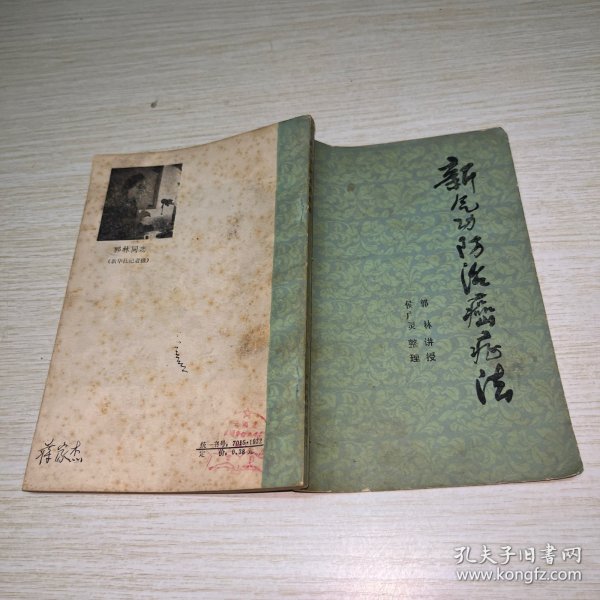 新气功防治癌症法
郭林讲授
侯广灵整理
郭林同志
(新华社记者摄)
统一书号：7015·1922
定价：0.38元
蒋家杰
孔夫子旧书网
www.kongfz.com